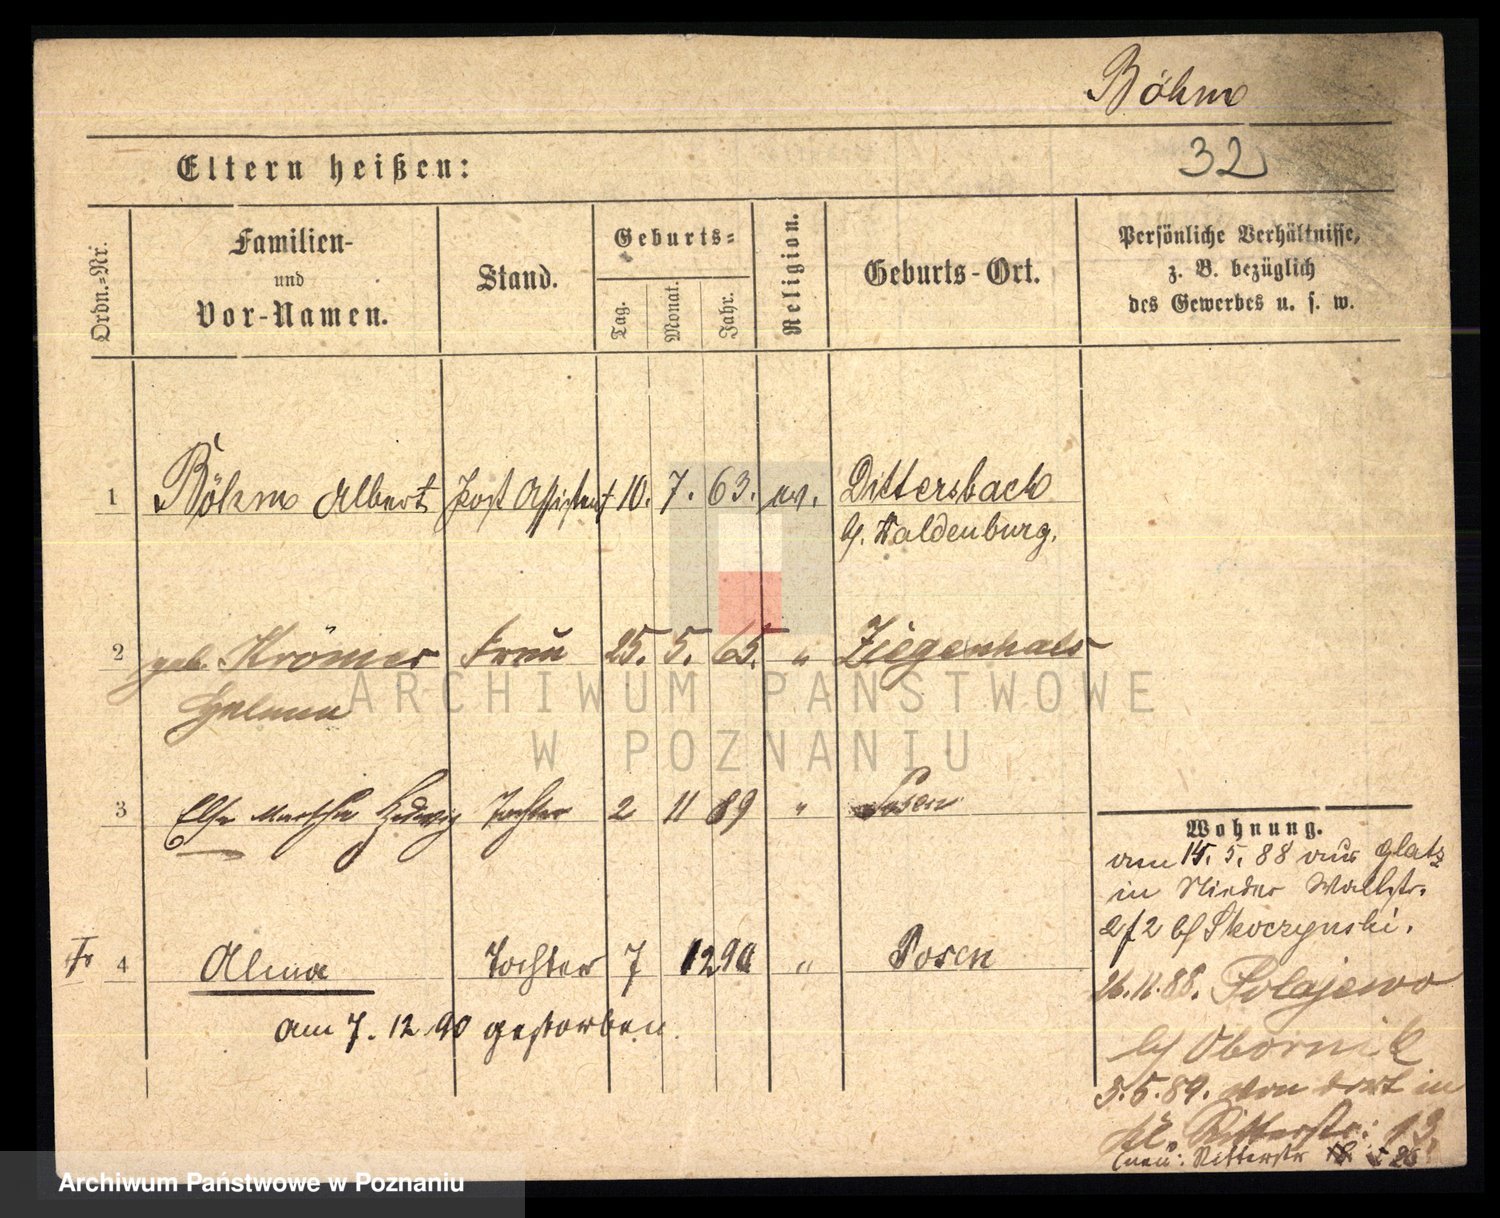 Böhm
32
Eltern heißen:
Ordn.-Nr.
Familien-
und
Vor-Namen.
Stand.
Geburts-
Tag.
Monat.
Jahr.
Religion.
Geburts-Ort.
Persönliche Verhältnisse,
z. B. bezüglich
des Gewerbes u. s. w.
1 Böhm Albert Post Assistent 10. 7. 63. ev. Dittersbach
b/. Waldenburg.
2 geb. Krömer Frau 25. 5. 65. " Ziegenhals
Helene
3 Else Martha Hedwig Tochter 2 11 89 " Posen
4 Alma Tochter 7 12 90 " Posen
am 7. 12 90 gestorben.
Wohnung.
am 15. 5. 88 aus Glatz
in Nieder Wallstr.
2/2 b/ Skoczynski.
26.11.88. Polajewo
b/ Obornik
3.5.89. von dort in
kl. Ritterstr: 13.
(neu: Ritterstr
ARCHIWUM PAŃSTWOWE
W POZNANIU
Archiwum Państwowe w Poznaniu